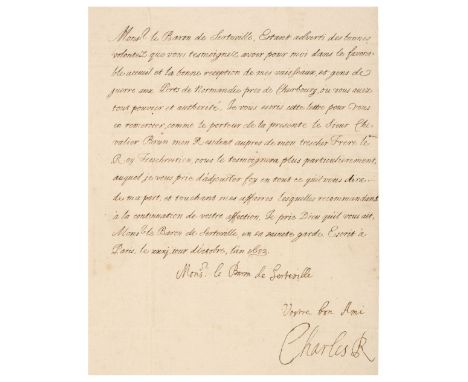 Mons.r le Baron de Sortoville, Estant adverti des bonnes
volontez que vous tesmoignez avoir pour moi dans le favora-
ble acueil et la bonne reception de mes vaisseaux, et gens de
guerre aux Ports de Normandie pres de Cherbourg, ou vous avez
tout pouvoir et authorité. Je vous escris cette lettre pour vous
en remercier, comme le porteur de la presente le Sieur Che-
valier Brown mon Resident aupres de mon trescher Frere le
Roy Treschrestien, vous le tesmoignera plus particulierement,
auquel je vous prie d'adjouster foy en tout ce qu'il vous dira
de ma part, et touchant mes affaires lesquelles recommandant
à la continuation de vostre affection, Je prie Dieu qu'il vous ait,
Mons.r le Baron de Sortoville, en sa sainte garde. Escrit à
Paris, le jour d'octobre, l'an 1652
Mons.r le Baron de Sortoville
Vostre bon Ami
Charles R